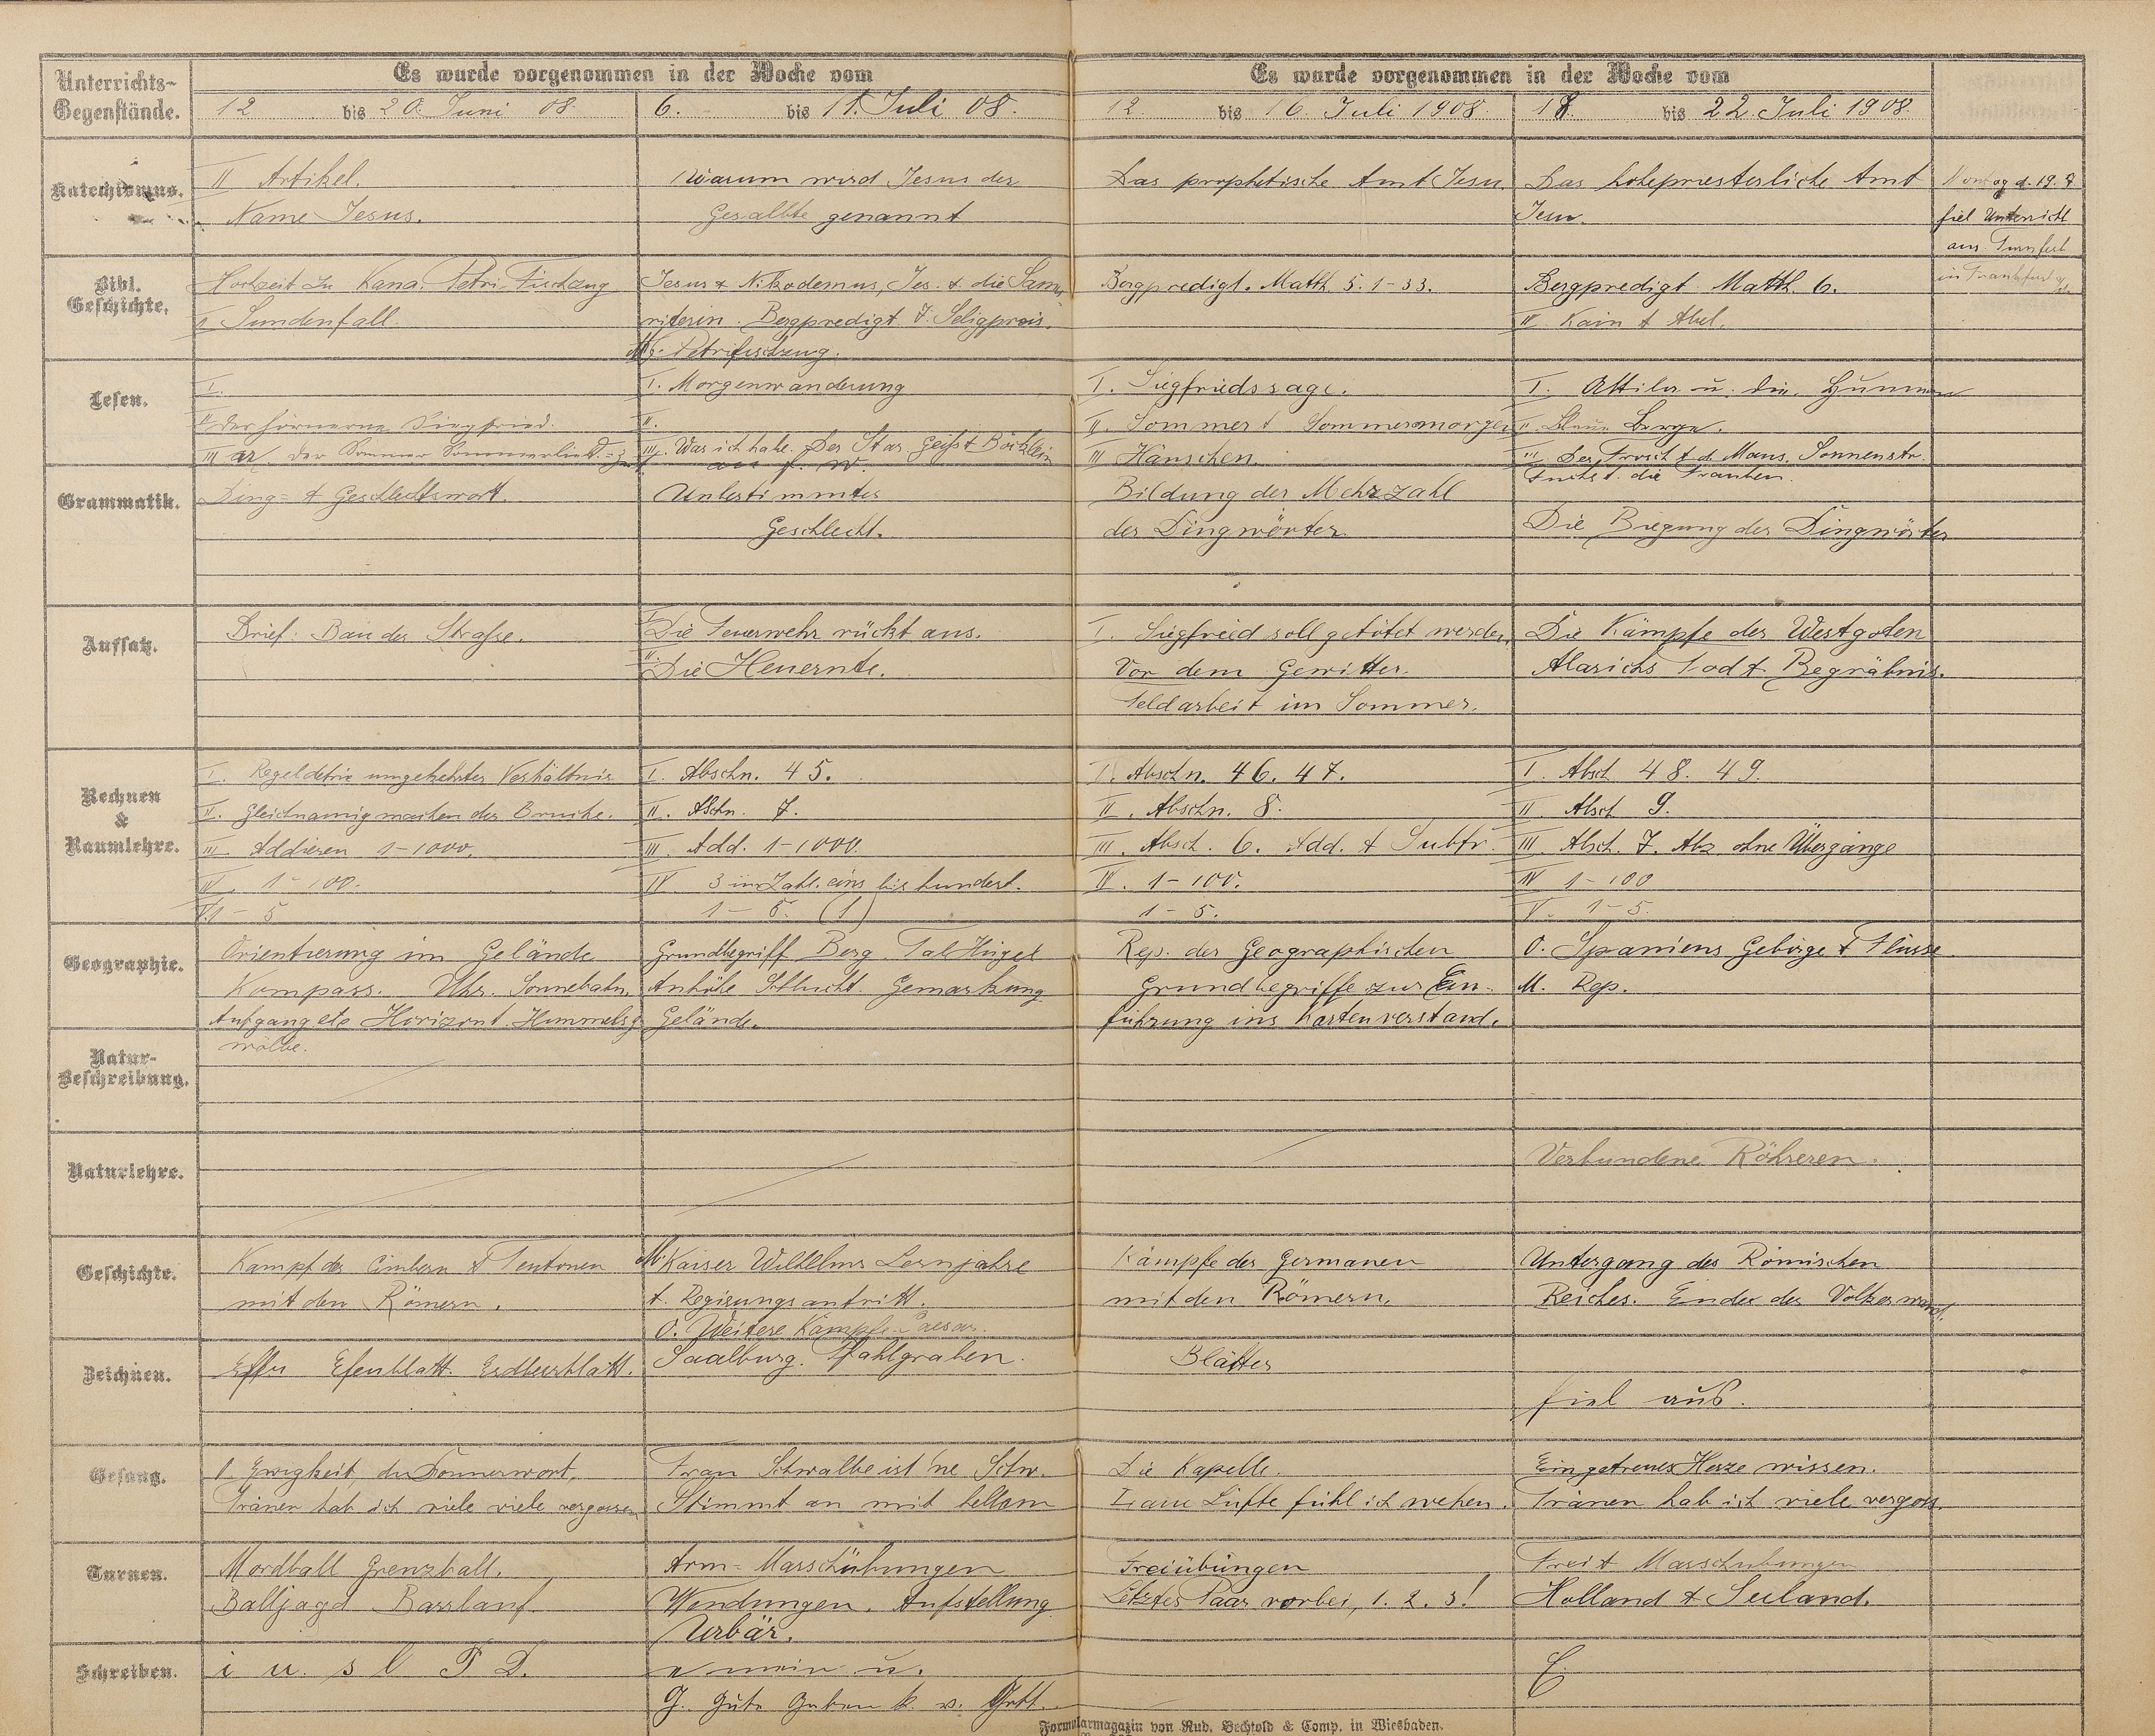 Unterrichts-
Gegenstände.
Es wurde vorgenommen in der Woche vom
Es wurde vorgenommen in der Woche vom
12 bis 20. Juni 08.
6. bis 11. Juli 08.
12. bis 16. Juli 1908.
18. bis 22. Juli 1908.
Katechismus.
II Artikel.
Name Jesus.
Warum wird Jesus der
Gesalbte genannt
Das prophetische Amt Jesu.
Das hohepriesterliche Amt
Jesu.
Montag d. 19.
fiel Unterricht
aus. Turnfest
in Frankfurt
Bibl.
Geschichte.
Hochzeit zu Kana. Petri Fischzug
Sündenfall.
Jesus & Nikodemus, Jes. & die Sama-
riterin. Bergpredigt 7. Seligpreis.
Petrifischzug.
Bergpredigt. Matth 5. 1-33.
Bergpredigt Matth. 6.
IV. Kain & Abel.
Lesen.
I.
II Der hörnerne Siegfried.
III Der Sommer Sommerlied
I. Morgenwanderung
II.
III. Was ich habe. Der Star. Geiß & Böcklein
I. Siegfriedssage.
II. Sommer & Sommermorgen
III Hänschen.
I. Attila u. die Hunnen
II. Blaue Berge.
III Der Frosch & d. Maus. Sonnenstr.
Fuchs & die Trauben.
Grammatik.
Ding- & Geschlechtswort.
Unbestimmtes
Geschlecht.
Bildung der Mehrzahl
der Dingwörter
Die Biegung der Dingwörter
Aufsatz.
Brief: Bau der Straße.
I. Die Feuerwehr rückt aus.
II. Die Heuernte.
I. Siegfried soll getötet werden.
Vor dem Gewitter.
Feldarbeit im Sommer.
Die Kämpfe der Westgoten
Alarichs Tod & Begräbnis.
Rechnen
&
Raumlehre.
I. Regeldetrie umgekehrtes Verhältnis
II. Gleichnamigmachen der Brüche.
III. Addieren 1-1000.
IV. 1-100.
V. 1-5
I. Abschn. 45.
II. Abschn. 7.
III. Add. 1-1000.
IV. 3 im Zahl. eins bis hundert.
1-5. (1)
I. Abschn. 46. 47.
II. Abschn. 8.
III. Absch. 6. Add. & Subtr.
IV. 1-100.
1-5.
I. Absch 48. 49.
II Absch 9.
III Absch. 7. Abz. ohne Übergänge
IV 1-100
V. 1-5.
Geographie.
Orientierung im Gelände
Kompass. Uhr. Sonnebahn.
Aufgang etc Horizont. Himmelsge-
wölbe.
Grundbegriff Berg. Tal Hügel
Anhöhe Schlucht. Gemarkung
Gelände.
Rep. der Geographischen
Grundbegriffe zur Ein-
führung ins Kartenverständ.
O. Spaniens Gebirge & Flüsse.
M. Rep.
Natur-
Beschreibung.
Naturlehre.
Verbundene Röhreren.
Geschichte.
Kampf der Cimbern & Teutonen
mit den Römern.
M. Kaiser Wilhelms Lernjahre
& Regierungsantritt.
O. Weitere Kämpfe Caesar.
Saalburg. Pfahlgraben.
Kämpfe der Germanen
mit den Römern.
Untergang des Römischen
Reiches. Ende der Völkerwand.
Zeichnen.
Efeu Efeublatt. Erdbeerblatt.
Blätter
fiel aus.
Gesang.
O Ewigkeit, du Donnerwort.
Tränen hab ich viele viele vergossen
Frau Schwalbe ist 'ne Schw.
Stimmt an mit hellem
Die Kapelle.
Laue Lüfte fühl ich wehen.
Ein getreues Herze wissen.
Tränen hab ich viele vergoss.
Turnen.
Mordball Grenzball.
Balljagd Barrlauf.
Arm- Marschübungen
Wendungen. Aufstellung
Urbär.
Freiübungen
Letztes Paar vorbei, 1. 2. 3!
Frei & Marschübungen
Holland & Seeland.
Schreiben.
i u. s l T D.
n mein u.
G. Gute Gaben k. v. Gott.
C
Formularmagazin von Rud. Bechtold & Comp. in Wiesbaden.